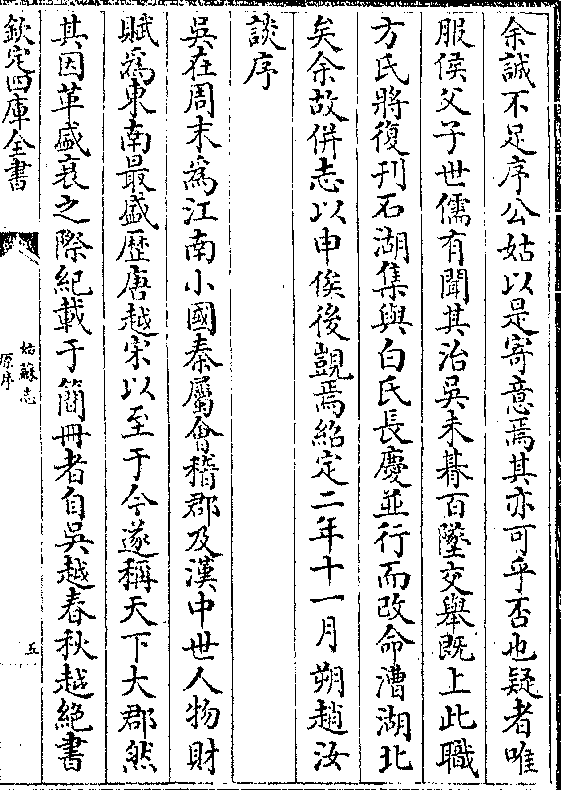 余誠不足序公姑以是寄意焉其亦可乎否也疑者唯
服侯父子世儒有聞其治吳未朞百墜交舉既上此職
方氏將復刊石湖集與白氏長慶並行而改命漕湖北
矣余故併志以申俟後覯焉紹定二年十一月朔趙汝
談序
吳在周末為江南小國秦屬會稽郡及漢中世人物財
賦為東南最盛歴唐越宋以至于今遂稱天下大郡然
其因革盛衰之際紀載于簡冊者自吳越春秋越絶書
欽定四庫全書
姑蘇志
原序
五